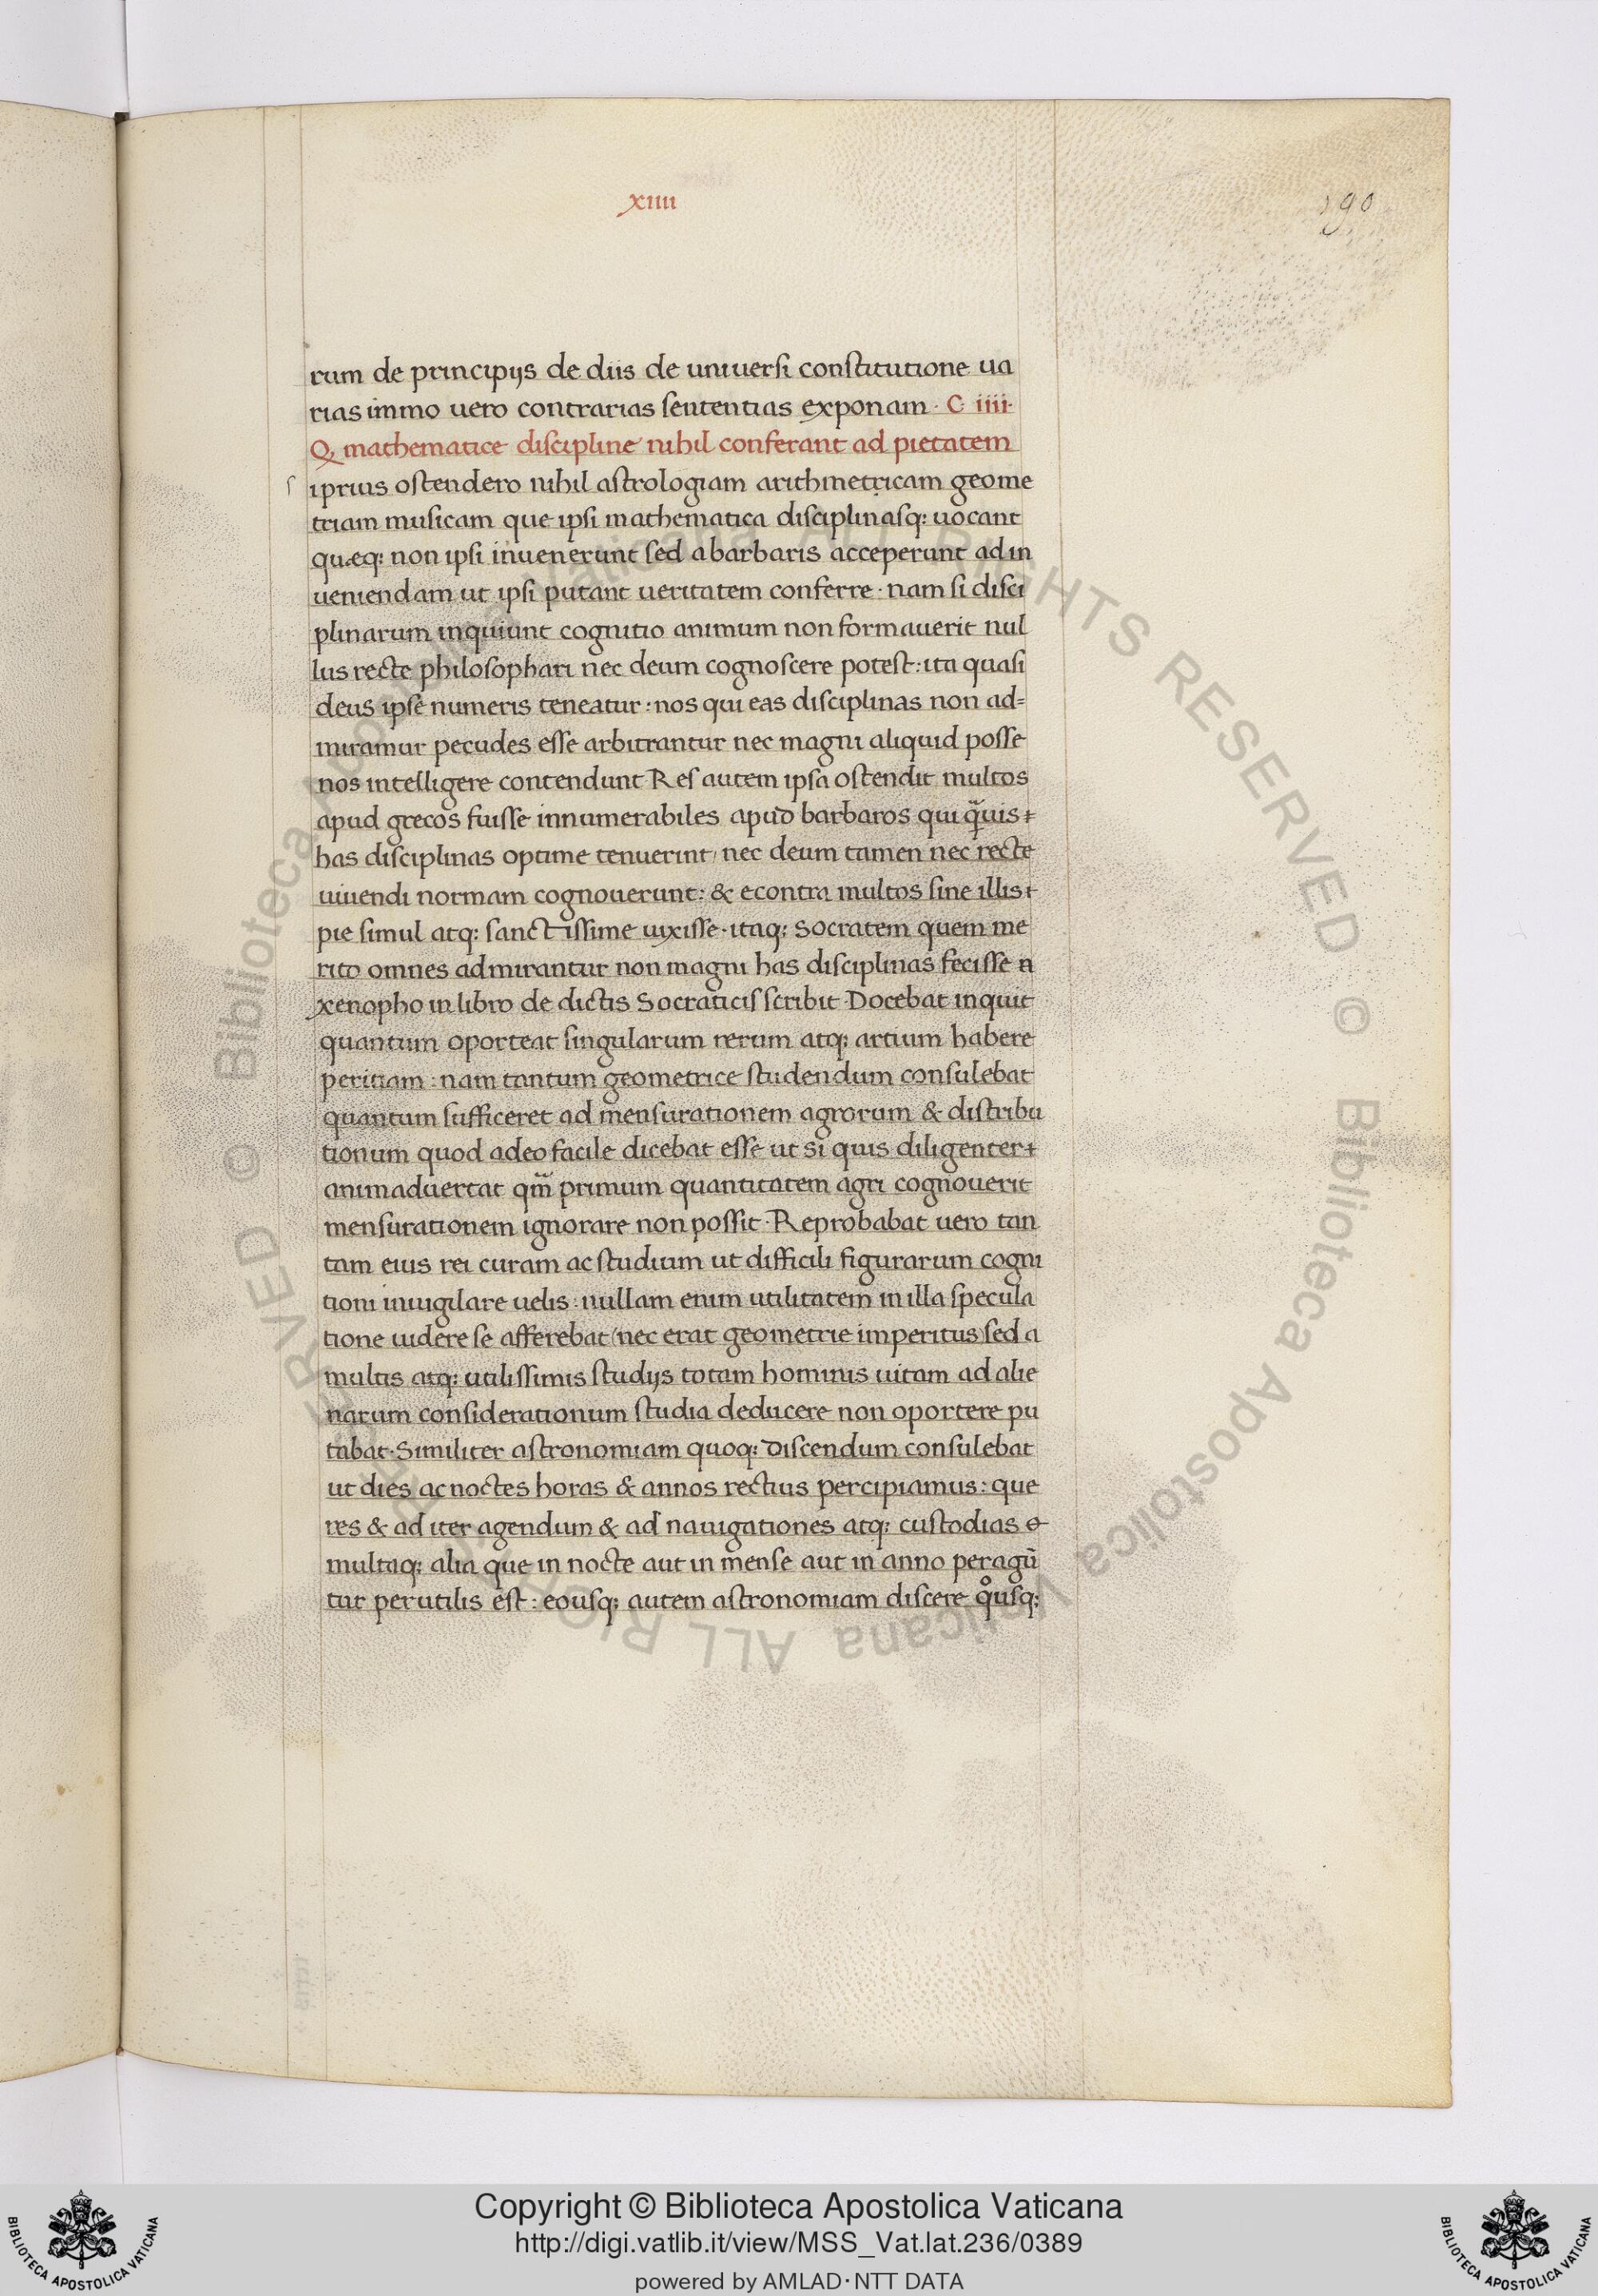 xiiii
190
rum de principijs de diis de uniuersi constitutione ua
rias immo uero contrarias sententias exponam · C iiii·
Q, mathematice discipline nihil conferant ad pietatem
s iprius ostendero nihil astrologiam arithmetricam geome
triam musicam que ipsi mathematica disciplinasq; uocant
quæq; non ipsi inuenerunt sed a barbaris acceperunt ad in
ueniendam ut ipsi putant ueritatem conferre · nam si disci
plinarum inquiunt cognitio animum non formauerit nul
lus recte philosophari nec deum cognoscere potest: ita quasi
deus ipse numeris teneatur: nos qui eas disciplinas non ad=
miramur pecudes esse arbitrantur nec magni aliquid posse
nos intelligere contendunt Res autem ipsa ostendit multos
apud grecos fuisse innumerabiles apud barbaros qui q̃uis
has disciplinas optime tenuerint/ nec deum tamen nec recte
uiuendi normam cognouerunt: & econtra multos sine illis
pie simul atq; sanctissime uixisse · itaq; Socratem quem me
rito omnes admirantur non magni has disciplinas fecisse
xenopho in libro de dictis Socraticis scribit · Docebat inquit
quantum oporteat singularum rerum atq; artium habere
peritiam : nam tantum geometrice studendum consulebat
quantum sufficeret ad mensurationem agrorum & distribu
tionum quod adeo facile dicebat esse ut si quis diligenter
animaduertat qm̃ primum quantitatem agri cognouerit
mensurationem ignorare non possit · Reprobabat uero tan
tam eius rei curam ac studium ut difficili figurarum cogni
tioni inuigilare uelis : nullam enim utilitatem in illa specula
tione uidere se afferebat (nec erat geometrie imperitus) sed a
multis atq; utilissimis studijs totam hominis uitam ad alie
narum considerationum studia deducere non oportere pu
tabat · Similiter astronomiam quoq; discendum consulebat
ut dies ac noctes horas & annos rectius percipiamus: que
res & ad iter agendum & ad nauigationes atq; custodias
multaq; alia que in nocte aut in mense aut in anno peragū
tur perutilis est : eousq; autem astronomiam discere qͦusq;
© Biblioteca Apostolica Vaticana ALL RIGHTS RESERVED
© Biblioteca Apostolica Vaticana ALL RIGHTS RESERVED
BIBLIOTECA APOSTOLICA VATICANA
Copyright © Biblioteca Apostolica Vaticana
http://digi.vatlib.it/view/MSS_Vat.lat.236/0389
powered by AMLAD·NTT DATA
BIBLIOTECA APOSTOLICA VATICANA